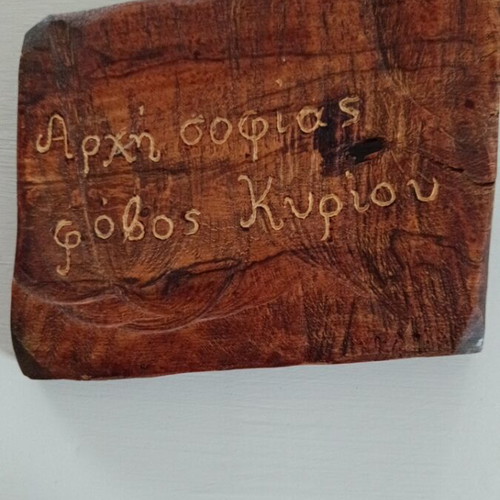 Αρχή σοφιας
φόβος Κυρίου